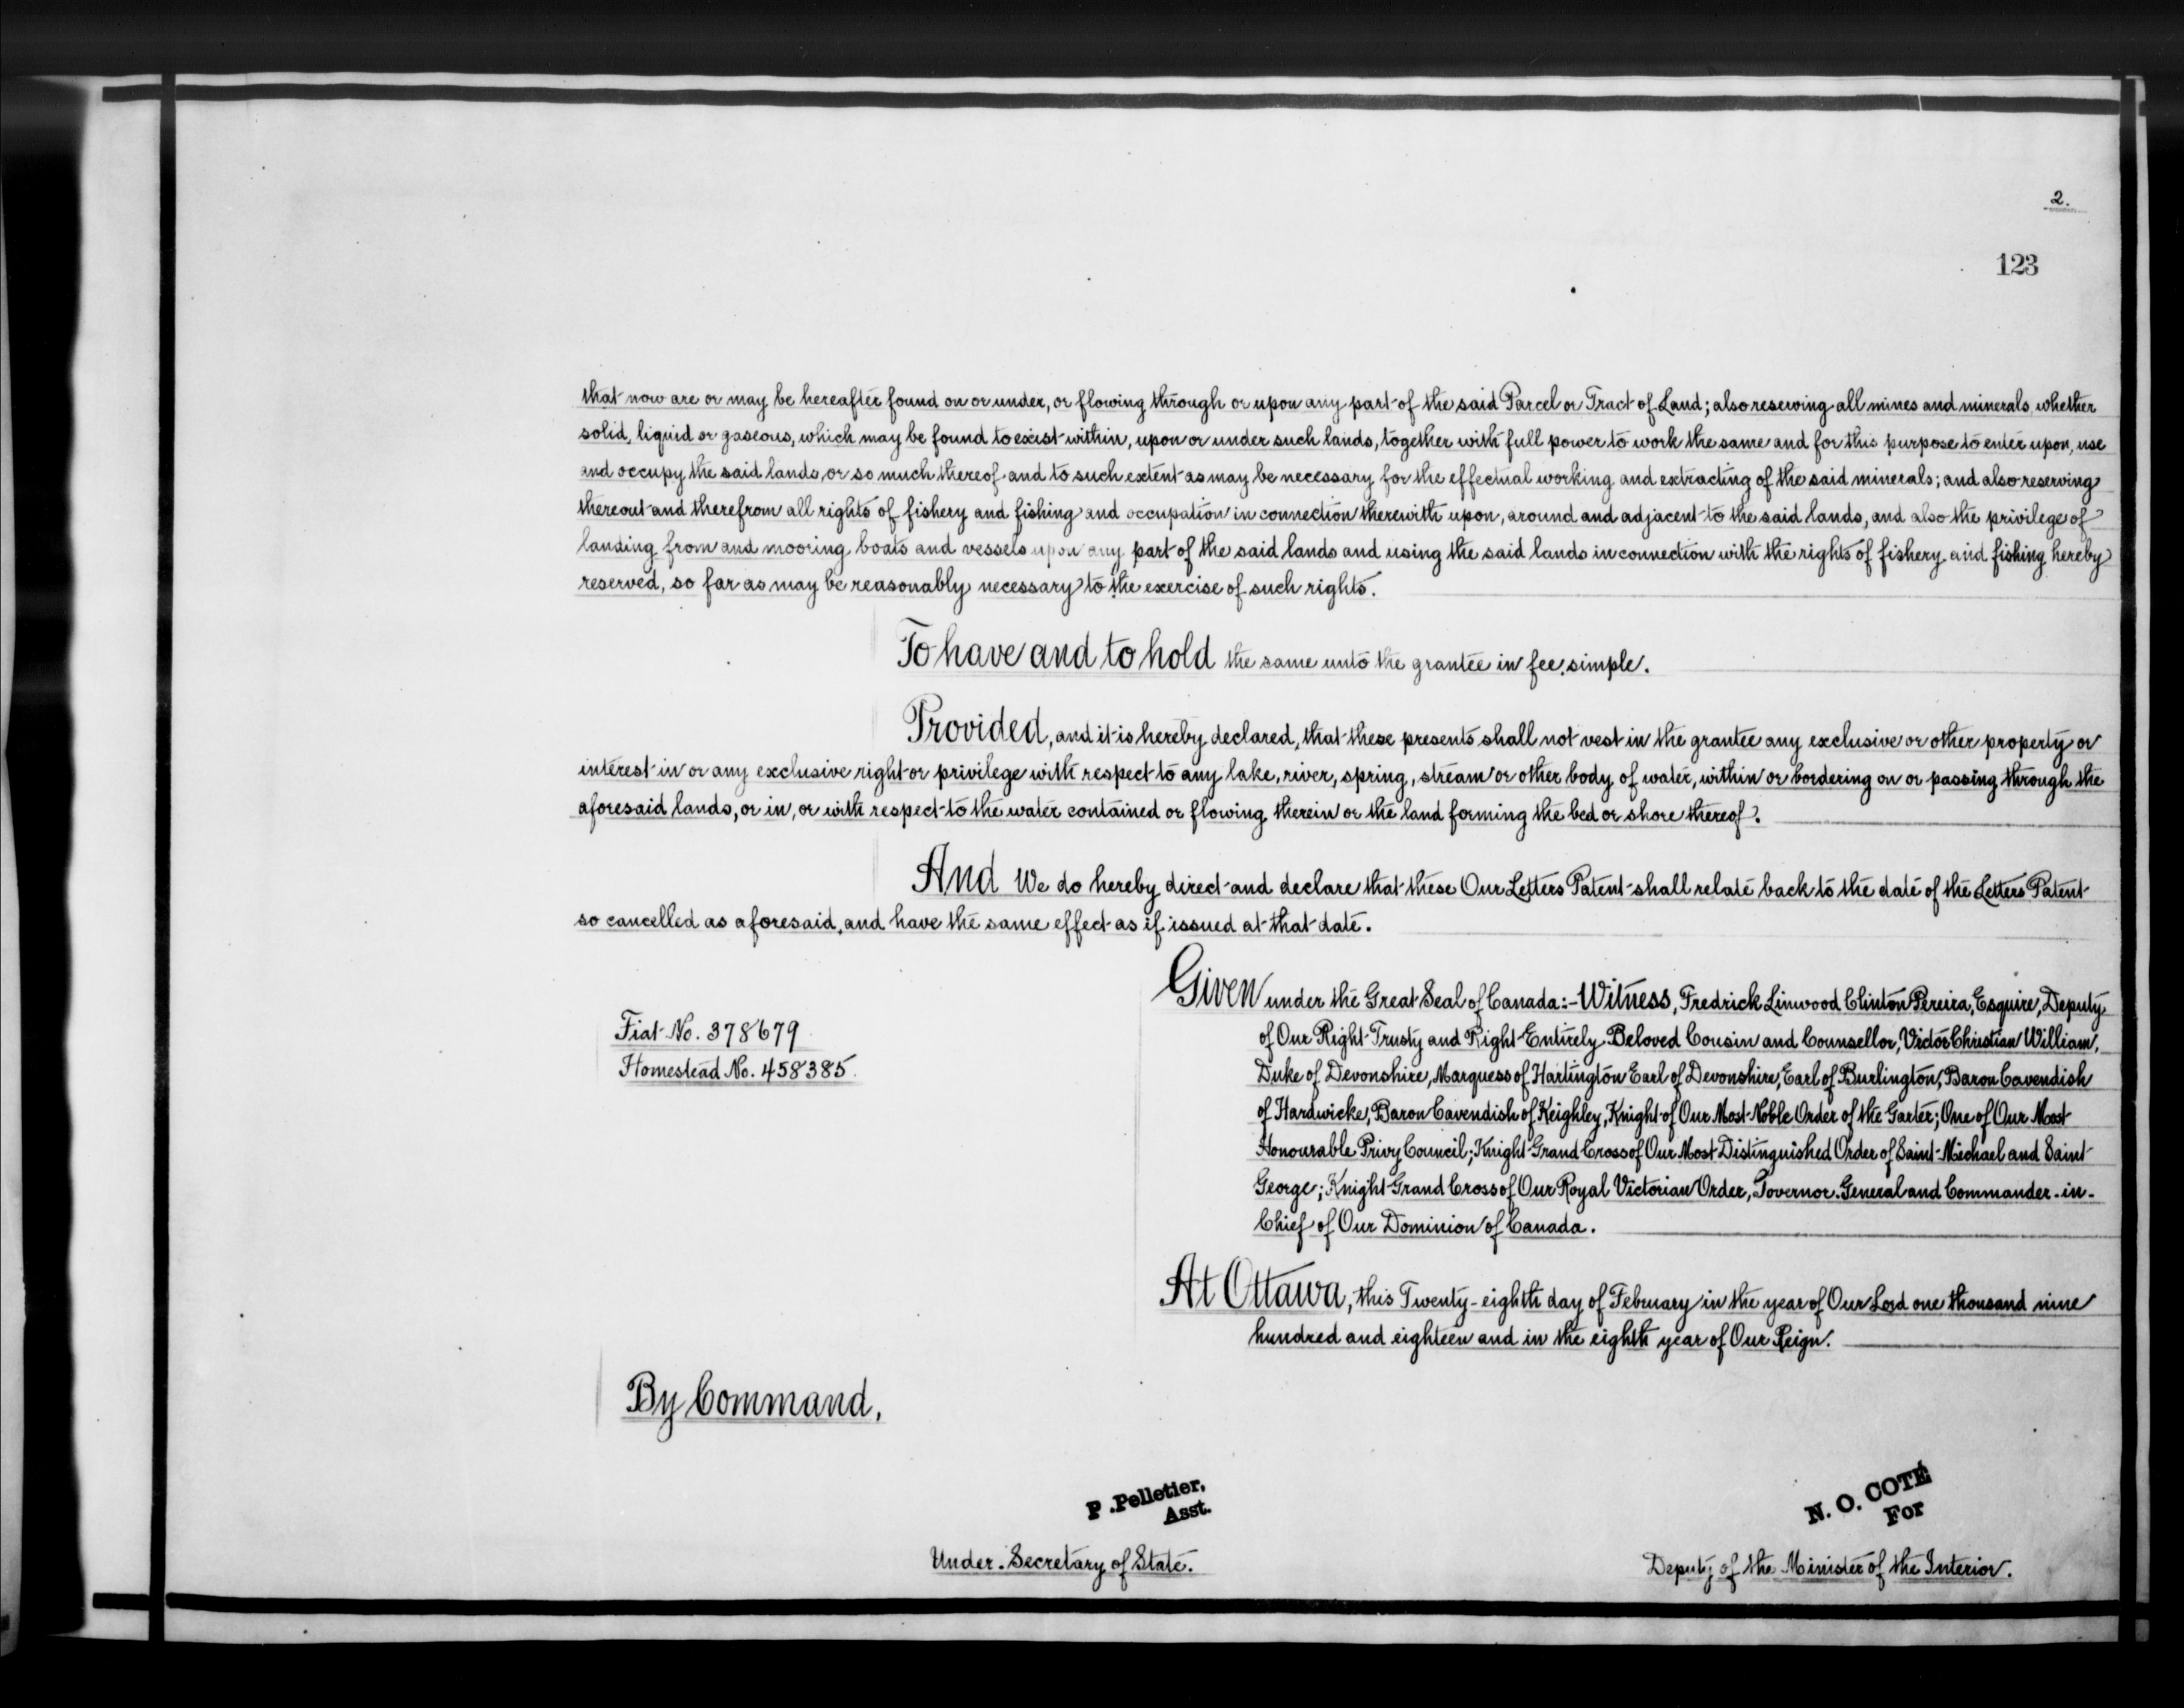 2.
123
that now are or may be hereafter found on or under, or flowing through or upon any part of the said Parcel or Tract of Land; also reserving all mines and minerals, whether
solid, liquid or gaseous, which may be found to exist within, upon or under such lands, together with full power to work the same and for this purpose to enter upon, use
and occupy the said lands, or so much thereof and to such extent as may be necessary for the effectual working and extracting of the said minerals; and also reserving
thereout and therefrom all rights of fishery and fishing and occupation in connection therewith upon, around and adjacent to the said lands, and also the privilege of
landing from and mooring boats and vessels upon any part of the said lands and using the said lands in connection with the rights of fishery and fishing hereby
reserved, so far as may be reasonably necessary to the exercise of such rights.
To have and to hold the same unto the grantee in fee simple.
Provided, and it is hereby declared, that these presents shall not vest in the grantee any exclusive or other property or
interest in or any exclusive right or privilege with respect to any lake, river, spring, stream or other body of water, within or bordering on or passing through the
aforesaid lands, or in, or with respect to the water contained or flowing therein or the land forming the bed or shore thereof.
And We do hereby direct and declare that these Our Letters Patent shall relate back to the date of the Letters Patent
so cancelled as aforesaid, and have the same effect as if issued at that date.
Given under the Great Seal of Canada:- Witness, Fredrick Linwood Clinton Pereira, Esquire, Deputy
of Our Right Trusty and Right Entirely Beloved Cousin and Counsellor, Victor Christian William,
Duke of Devonshire, Marquess of Hartington Earl of Devonshire, Earl of Burlington, Baron Cavendish
of Hardwicke, Baron Cavendish of Keighley, Knight of Our Most Noble Order of the Garter; One of Our Most
Honourable Privy Council; Knight Grand Cross of Our Most Distinguished Order of Saint Michael and Saint
George; Knight Grand Cross of Our Royal Victorian Order, Governor General and Commander-in-
Chief of Our Dominion of Canada.
Fiat No. 378679
Homestead No. 458385.
At Ottawa, this Twenty-eighth day of February in the year of Our Lord one thousand nine
hundred and eighteen and in the eighth year of Our Reign.
By Command,
P. Pelletier,
Asst.
Under-Secretary of State.
N. O. COTÉ
For
Deputy of the Minister of the Interior.